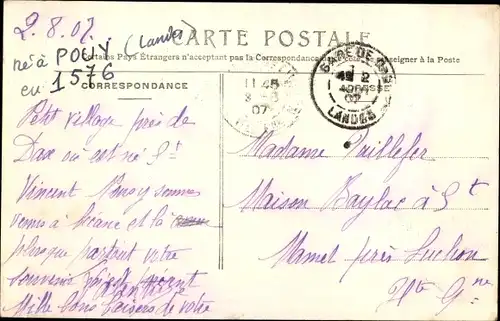 2.8.07.
né à POUY (Landes)
en 1576
CARTE POSTALE
Certains Pays Étrangers n'acceptant pas la Correspondance au Recto se renseigner à la Poste
CORRESPONDANCE
ADRESSE
GARE DE
2
07
LANDES
11 45
3
07
Petit village près de
Dax où est né St
Vincent
venus à et là
presque partout votre
souvenir présent
Mille bons baisers de votre
Madame Vuillefer
Maison Baylac à St
Mamet près Luchon
Hte Gne